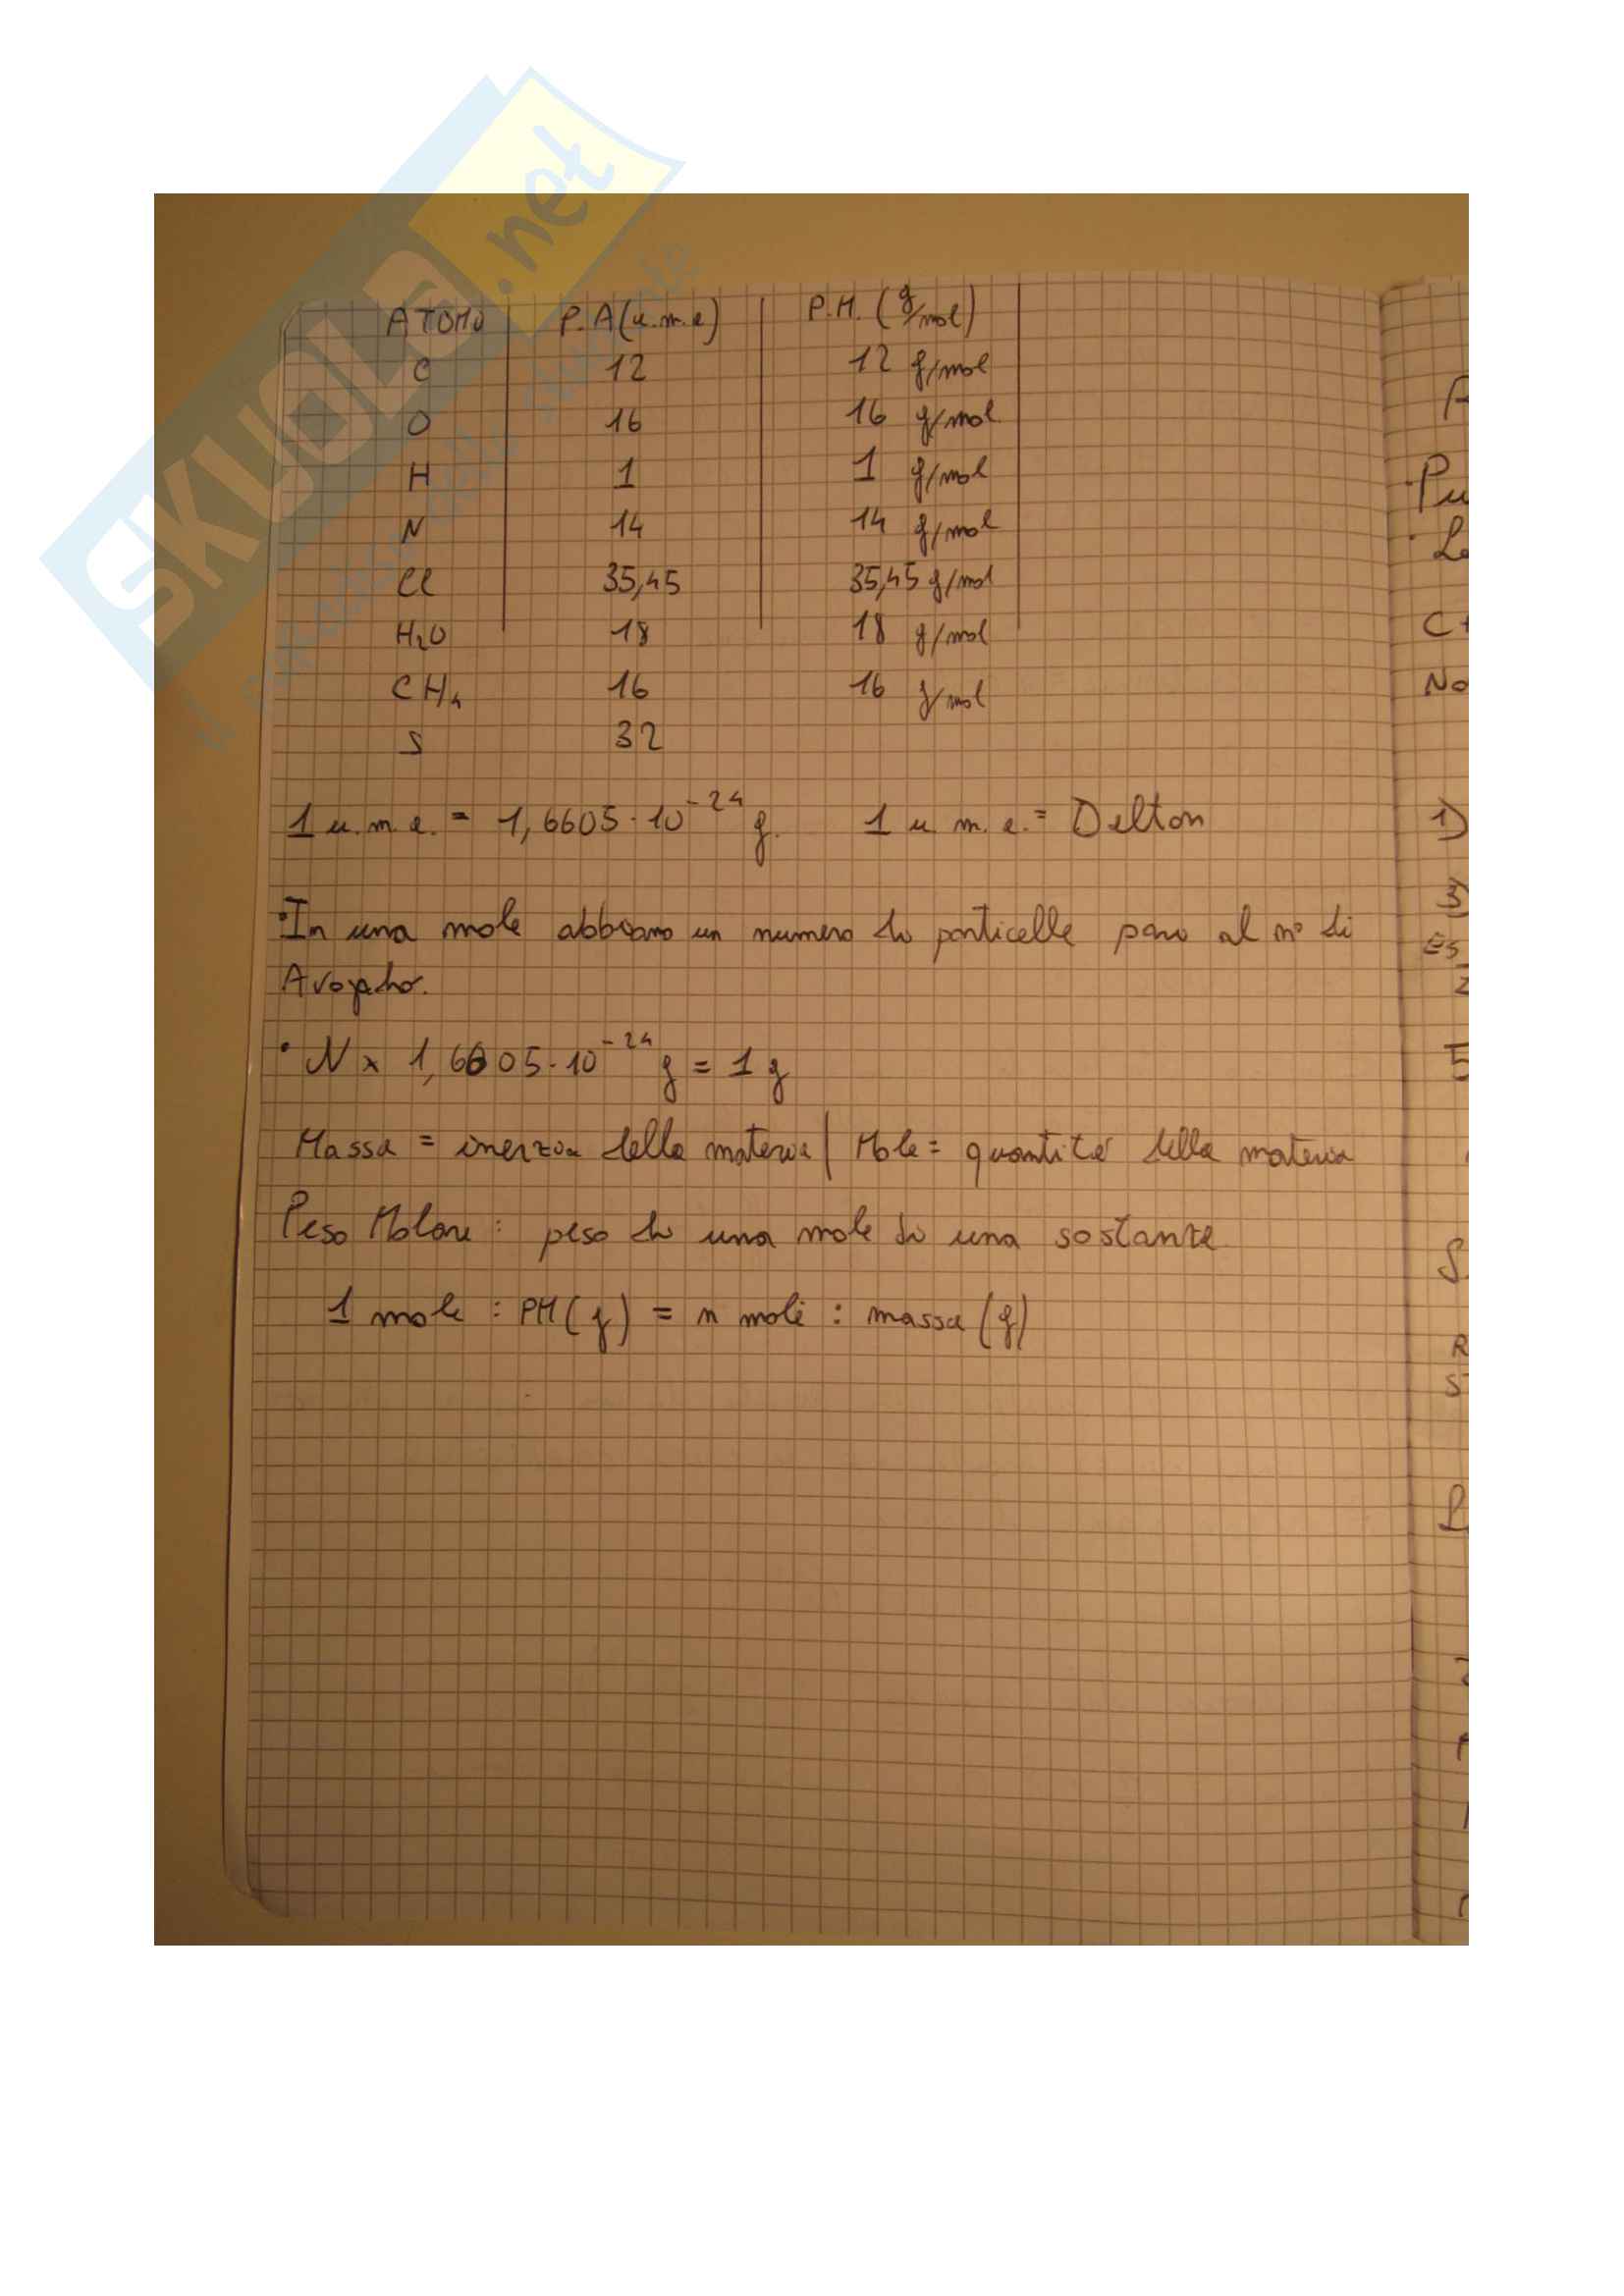 SKUOLA.net
ATOMO P.A(u.m.a) P.M. (g/mol)
C 12 12 g/mol
O 16 16 g/mol
H 1 1 g/mol
N 14 14 g/mol
Cl 35,45 35,45 g/mol
H₂O 18 18 g/mol
CH₄ 16 16 g/mol
S 32
1 u.m.a. = 1,6605·10⁻²⁴ g. 1 u.m.a. = Dalton
•In una mole abbiamo un numero di particelle pari al n° di
Avogadro.
• N x 1,6605·10⁻²⁴ g = 1 g
Massa = inerzia della materia | Mole = quantità della materia
Peso Molare: peso di una mole di una sostanza
1 mole : PM(g) = n moli : massa(g)
Pu
C
No
1)
3)
Es
5
S
R